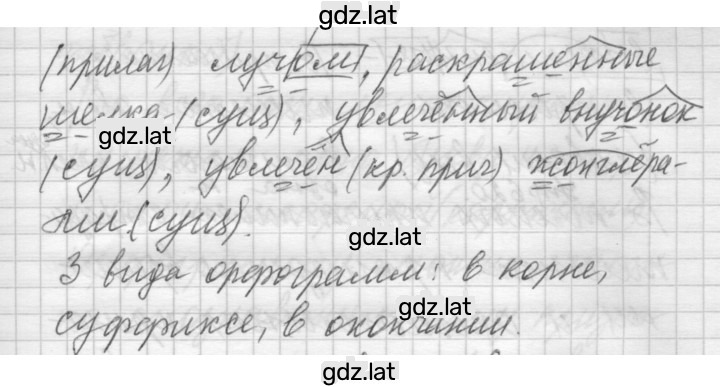 gdz.lat
(прилаг) лучом, раскрашенные
gdz.lat
(сущ), увлечённый внучонок
(сущ), увлечён (кр. прич) жонглёра-
ми (сущ).
gdz.lat
3 вида орфограмм: в корне,
gdz.lat
суффиксе, в окончании.
gdz.lat